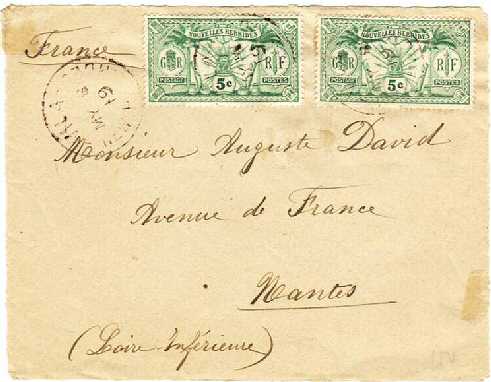 France
NOUVELLES HEBRIDES
G R
R F
POSTAGE
5c
POSTES
NOUVELLES HEBRIDES
G R
R F
POSTAGE
5c
POSTES
19
MY
Monsieur Auguste David
Avenue de France
Nantes
(Loire Inférieure)